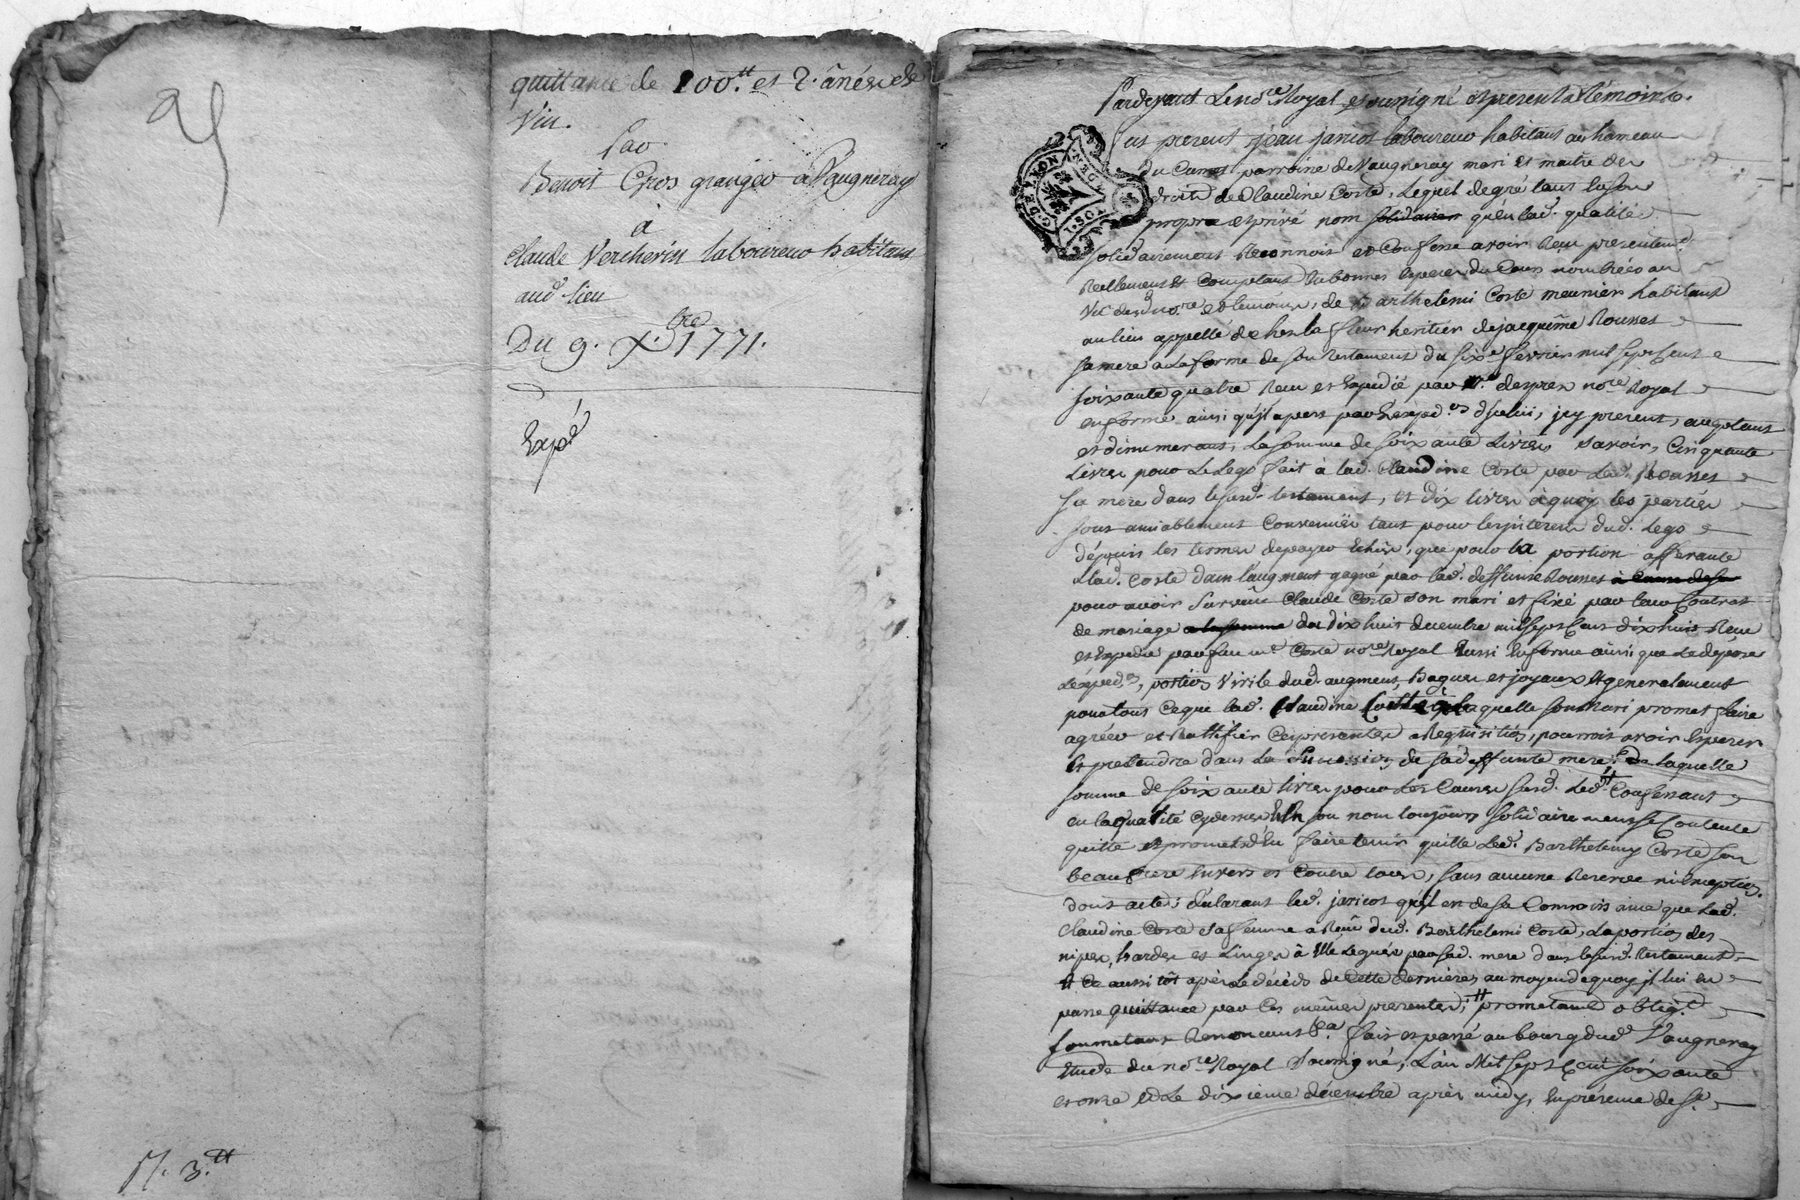 quittance de 200.tt et 2. ânées de
vin.
Par
Benoit Gros granger a Vaugneray
à
Claude Vercherin laboureur habitant
aud. lieu
Du 9. Xbre 1771.
Expé
N. 3.tt
Pardevant Le nore Royal soussigné et presents les témoins.
fut present jean jaricot laboureur habitant au hameau
du parroisse de Vaugneray mari et maitre des
droits de Claudine Coste, Lequel de gré tant en son
propre et privé nom solidairem qu'en lad. qualité
solidairement Reconnoit et Confesse avoir Reçu presentemt
Reellement et Comptant en bonnes especes du Cours nombrées au
Vû desd. nore et temoins, de Barthelemi Coste meunier habitant
au lieu appellé de chez la fleur heritier de jacquême Rousses
sa mere a la forme de son testament du sixe fevrier mil sept cent
soixante quatre Reçu et Expedié par Me despres nore Royal
en forme ainsi qu'il apert par d'icelui, icy present, acceptant
et dinumerant, La somme de soixante Livres savoir, Cinquante
Livres pour Le Legs fait à lad. Claudine Coste par lad. Rousses
sa mere dans le susd. testament, et dix livres à quoy les parties
sont amiablement Convenües tant pour les interets dud. Legs
dépuis les termes de payer échus, que pour la portion afferante
à lad. Coste dans l'augment gagné par lad. deffunte Rousses à Cause de sa
pour avoir survecu Claude Coste son mari et fixé par leur Contrat
de mariage a la somme du dix huit decembre mil sept Cent dix huit Reçu
et Expedié par feu me Coste nore Royal aussi en forme ainsi que
portion virile dud. augment, Bagues et joyaux et generalement
pour tout ce que lad. Claudine Coste à laquelle son mari promet faire
agréer et Rattifier Ces presentes a Requisition, pourroit avoir esperer
et pretendre dans La Succession de sad. deffunte mere, de laquelle
somme de soixante livres pour Les Causes susd. led. Confessant
en la qualité et en son nom toujours solidairement se Contente
quitte et promet en faire tenir quitte led. Barthelemy Coste son
beau frere Envers et Contre tous, sans aucune Reserve ni exception.
dont acte; déclarant led. jaricot qu'il est de sa Connoissance que lad.
Claudine Coste sa femme a Reçu dud. Berthelemi Coste, La portion des
nipes, hardes et Linges à Elle Leguées par sad. mere dans le susd. testament
et ce aussi tôt après Le décéds de Cette derniere, au moyen de quoy il lui en
passe quittance par Ces mêmes presentes, promettant obligt
soumettant Renonceant &a fait et passé au bourg dud. Vaugneray
Etude du nore Royal soussigné, L'an Mil sept Cent soixante
et onze et Le dixieme décembre après midy, en présence de Sr